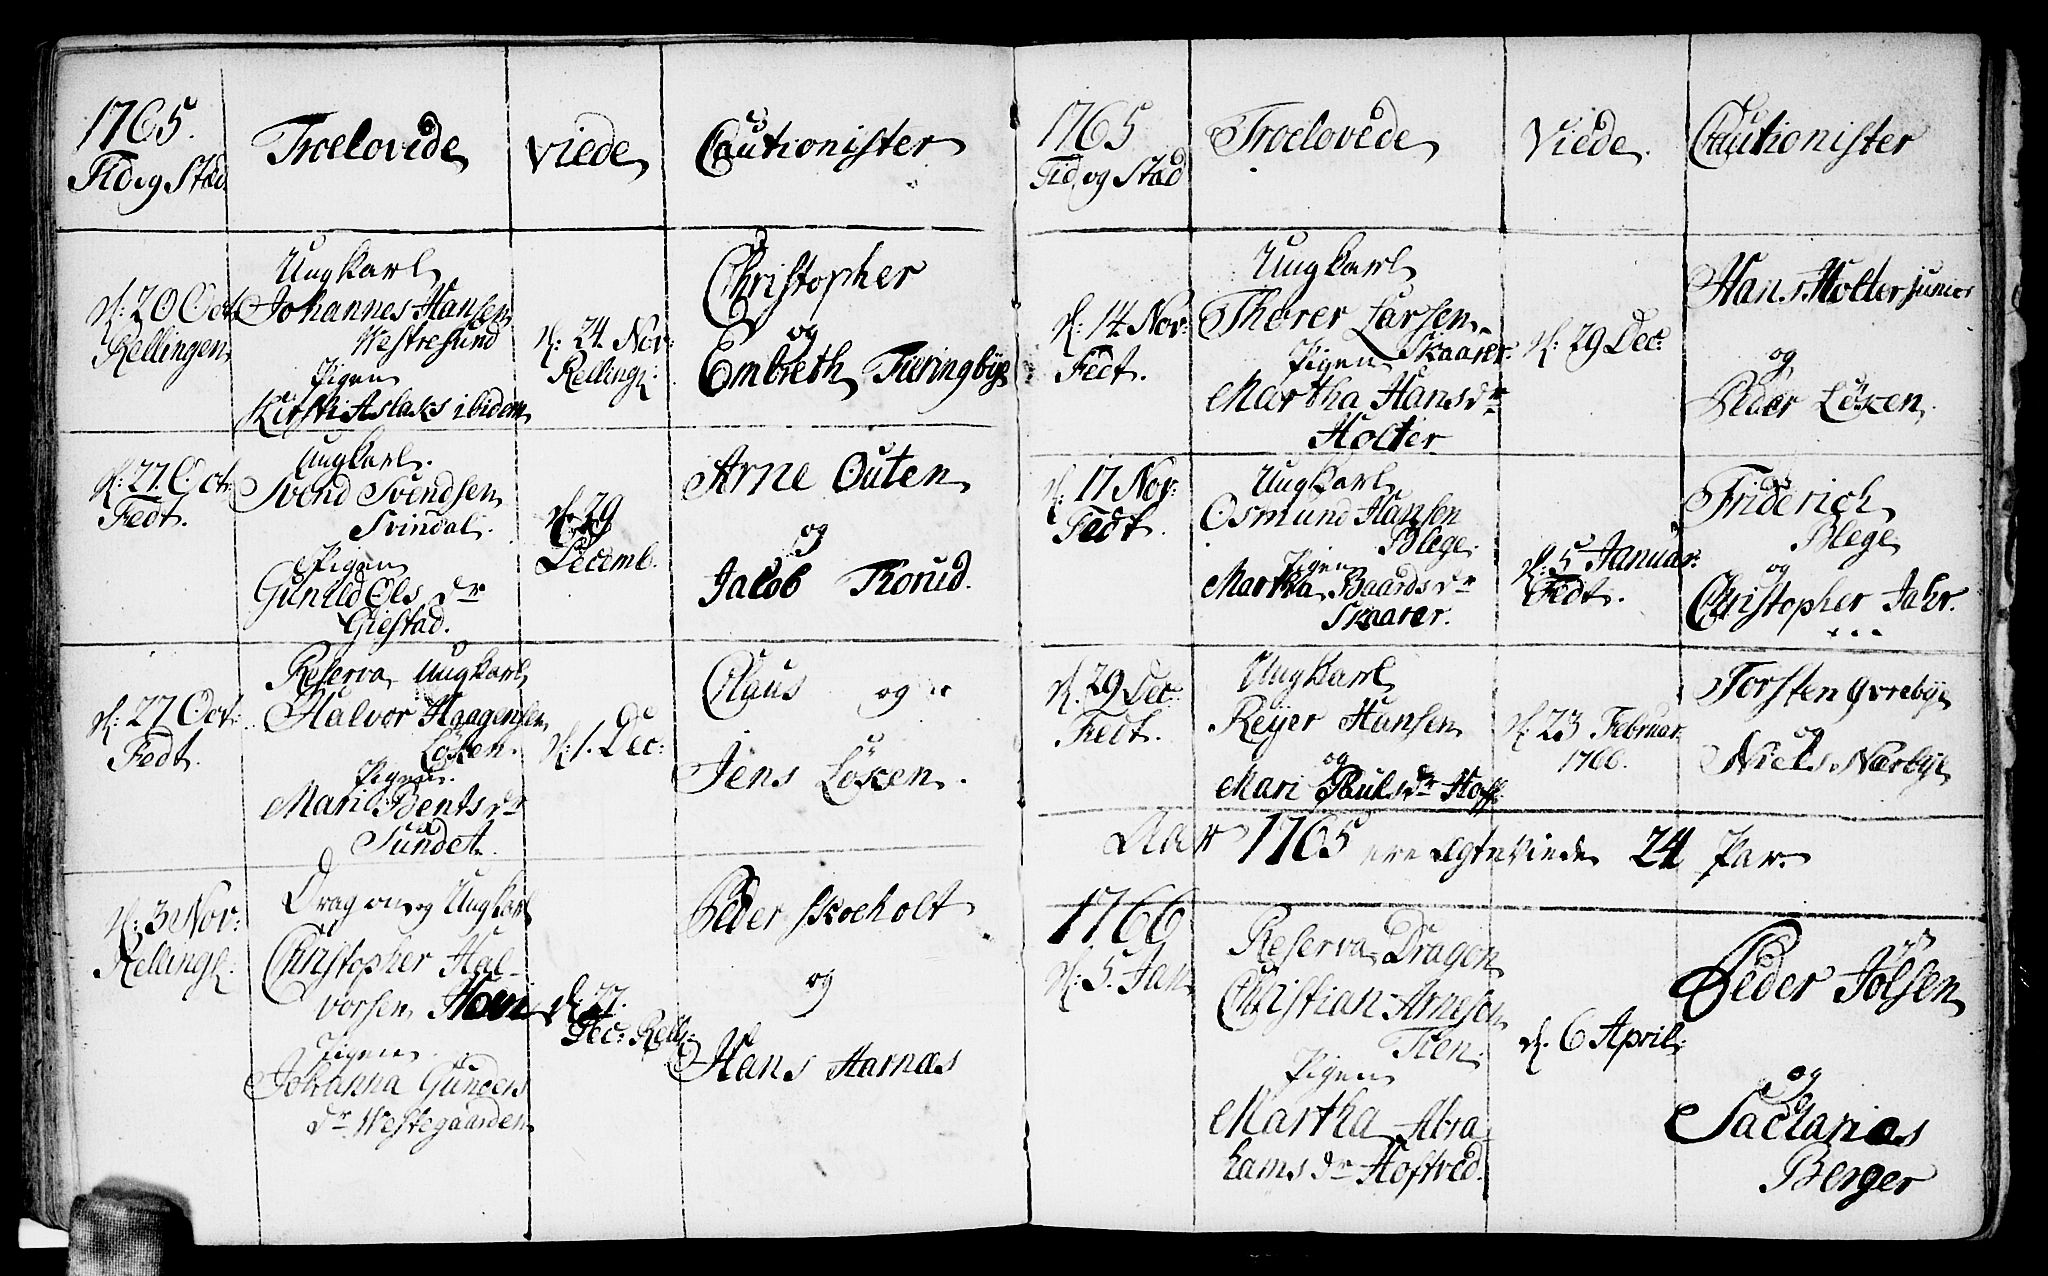 1765.
Tid og Stæd
Troelovede
Viede
Cautionister
d: 20 Oct
Rellingen
Ungkarl
Johannes Hansen
Westresund
Pigen
Kirsti Aslaks ibidem
d: 24 Nov:
Relling:
Christopher
og
Embreth Tæringbye
d: 27. Oct
Fedt.
Ungkarl.
Svend Svendsen
Svindal.
Pigen
Gunild Ols dr
Giestad.
d. 29
Decemb.
Arne Outen
og
Jacob Thorud.
d: 27 Oct:
Fedt.
Reserva Ungkarl
Halvor Haagensen
Løken.
Pigen.
Mari Bents dr
Sundet.
d: 1. Dec:
Claus og
Jens Løken.
d: 3 Nov:
Relling:
Dragon og Ungkarl
Christopher Hal-
vorsen Hovi
Pigen
Johanna Gunders
dr. Westegaarden
d. 27.
Dec: Rell:
Peder Skoeholt
og
Hans Harnæs
1765
Tid og Stæd
Troelovede
Viede.
Cautionister
d: 14 Nov:
Fedt.
Ungkarl
Thorer Larsen
Skaarer.
Pigen
Martha Hans dr
Holter
d: 29 Dec:
Hans Holter junior
og
Peder Løken.
d: 17 Nov:
Fedt.
Ungkarl
Osmund Hansen
Blege.
Pigen
Martha Baards dr
Skaarer.
d: 5 Januar:
Fedt.
Friderich
Blege
og
Christopher Jahr.
d: 29 Dec:
Fedt.
Ungkarl
Reyer Hansen
og
Mari Pouls dr Hoff
d: 23 Februar
1766.
Torsten Øvrebye
og
Niels Nærbye
Aar 1765 ere Ægteviede 24 Par.
1766
d: 5. Jan
Reserva Dragon
Christian Arnesen
Tien.
Pigen
Martha Abra
hams dr Hoftved.
d. 6 April:
Peder Jølsen
og
Sacharias
Berger